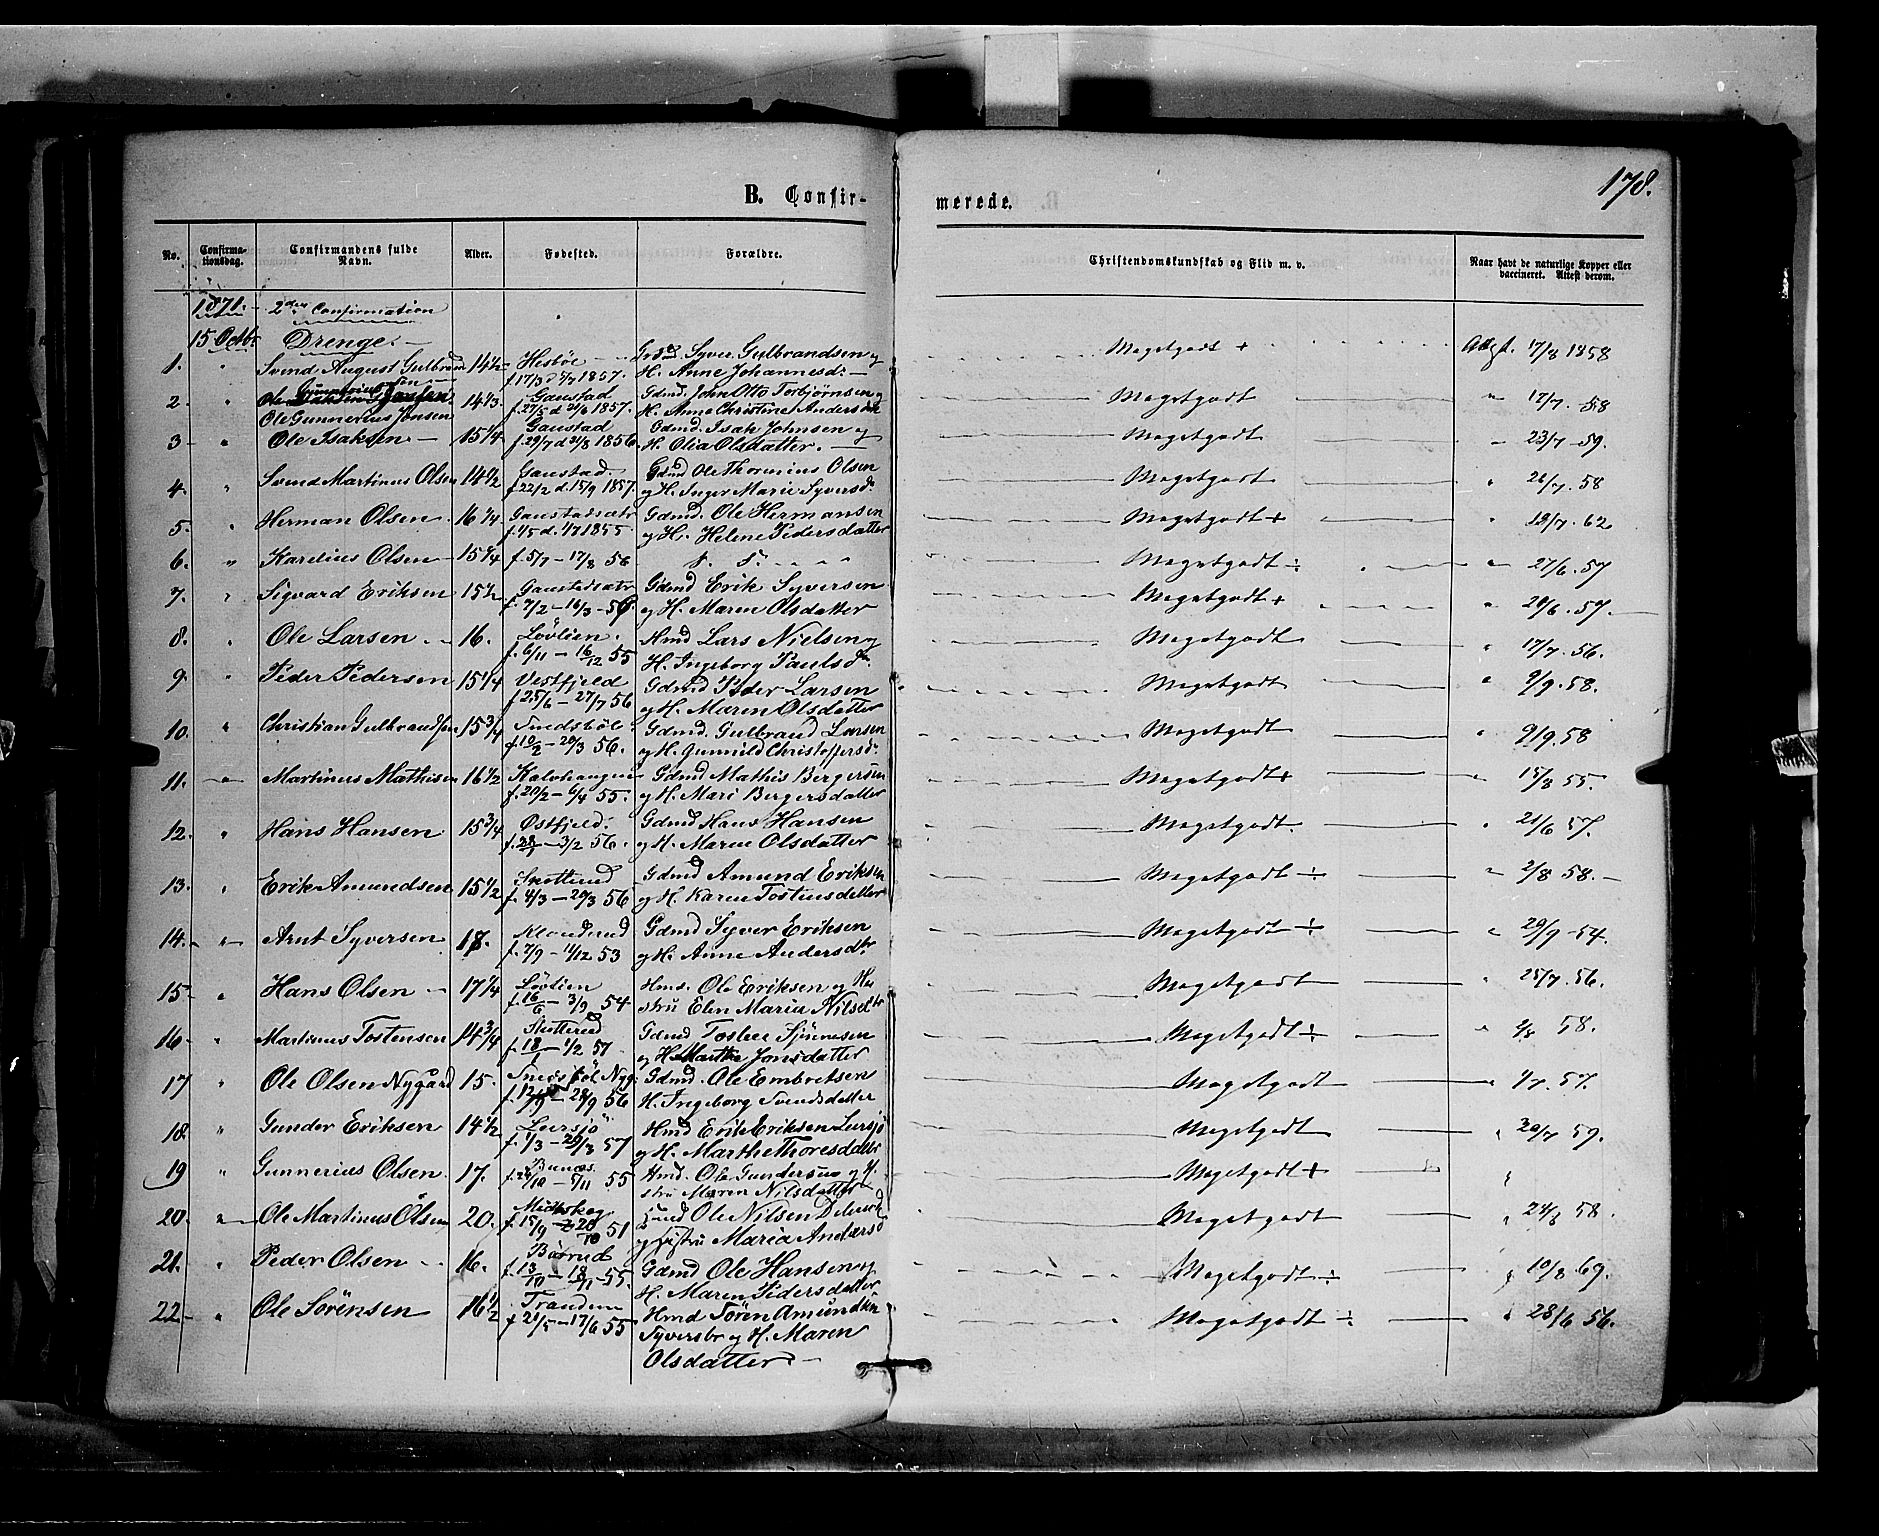 178.
B. Confir-
merede.
No.
Confirma-
tionsdag.
Confirmandens fulde
Navn.
Alder.
Fødested.
Forældre.
Christendomskundskab og Flid m. v.
Naar havt de naturlige Kopper eller
vaccineret. Attest derom.
1871. 2den Confirmation
15 Octbr Drenge.
1. " Svend August Gulbrand 14 1/2 Hesböe Grdmd Syver Gulbrandsen og Megetgodt + Attst. 17/8 1858
sen f. 17/3 1857. H. Anne Johannesd.
2. " Ole Gunnerius Jonsen 14 1/3 Gaustad Gdmd. John Otto Torbjørnsen og Megetgodt " 17/7 58
f. 27/5 d 21/6 1857. H. Anne Christine Andersdtr
3 " Ole Isaksen 15 1/4 Gaustad Gdmd. Isak Johnsen og Megetgodt " 23/7 59.
f. 29/7 d 31/8 1856. H. Olia Olsdatter.
4. " Svend Martinus Olsen 14 1/2 Gaustad. Gdmd Ole Thorinius Olsen Megetgodt " 26/7. 58
f. 22/2 d. 15/9 1857. og H. Inger Marie Syversd.
5. " Herman Olsen 16 1/4 Gaustadsætr Gdmd. Ole Hermansen Megetgodt + " 19/7. 62
f. 1/5 d. 1/7 1855. og H. Helene Pedersdatter
6. " Karelius Olsen 15 1/4 f. 5/7 - 17/8 56 Megetgodt ÷ " 27/6. 57
7. " Sigvard Eriksen 15 1/2 Gaustadsætr Gdmd Erik Syversen Megetgodt + " 20/6. 57.
f. 7/2 - 16/3 - 56. og H. Maren Olsdatter
8. " Ole Larsen 16. Lövlien. Hmd Lars Nielsen og Megetgodt " 17/7. 56.
f. 6/11 - 16/12 55 H. Ingeborg Paulsd.
9. " Peder Pedersen 15 1/4 Vestfjeld Gdmd Peder Larsen Megetgodt " 9/9. 58.
f. 25/6 - 27/7 56 og H. Maren Olsdatter
10. " Christian Gulbrandsen 15 3/4 Gdmd. Gulbrand Larsen Megetgodt " 9/9. 58
f. 10/2 - 20/3 56. og H. Gunnild Christoffersd.
11. " Martinus Mathisen 16 1/2 Kalvhaugen Gdmd Mathis Bergersen Megetgodt + " 15/8 55.
f. 20/2 - 6/4 55. og H. Mari Bergersdatter
12. " Hans Hansen 15 3/4 Østfjeld. Gdmd Hans Hansen Megetgodt. " 21/6 57.
3/2 56. og H. Maren Olsdatter
13. " Erik Amundsen 15 1/2 Gdmd Amund Eriksen Megetgodt ÷ " 2/8 58.
f. 4/3 - 20/3 56 og H. Karen Tostensdatter
14. " Arnt Syversen 18. Klanderud Gdmd Syver Eriksen Megetgodt ÷ " 29/9 - 54.
f. 7/9 - 11/12 53 og H. Anne Andersdtr
15 " Hans Olsen 17 1/4 Lövlien Hmd. Ole Eriksen og Hu Megetgodt " 25/7. 56.
f. 16/6 - 3/9 54 stru Elen Maria Nilsdtr
16 " Martinus Tostensen 14 3/4 Gdmd Megetgodt ÷ " 58.
1/2 57 og H. Marthe Jonsdatter
17 " Ole Olsen Nygård 15. Gdmd. Ole Embretsen Megetgodt " 57.
28/9 56 H. Ingeborg Svendsdatter
18. " Gunder Eriksen 14 1/2 Lursjö Hmd Erik Eriksen Lursjö Megetgodt " 20/7 59.
f. 1/3 - 29/3 57 og H. Marthe Thoresdatter
19 " Gunnerius Olsen 17. Bunæs Hmd. Ole Gundersen og H. Megetgodt + "
5/11 55 stru Maren Nilsdatter
20. " Ole Martinus Olsen 20. Midtskog Ole Nilsen Megetgodt " 24/8 58.
f. 15/9 - 20/10 51 og Hustru Maria Andersd
21. " Peder Olsen 16. Børud Gdmd Ole Hansen og Megetgodt ÷ " 10/8 69.
f. 13/10 - 18/11 - 55. H. Maren Pedersdatter
22 " Ole Sörensen 16 1/2 Trandum Hmd Sören Amundsen Megetgodt ÷ " 28/6 56.
f 21/5 - 17/6 55 Syversbr og H. Maren
Olsdatter.